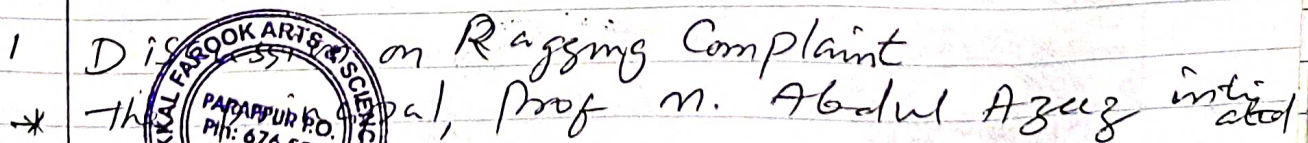 1 Discussion on Ragging Complaint
* the principal, Prof M. Abdul Azeez intimated
KKAL FAROOK ARTS & SCIENC
PARAPPUR P.O.